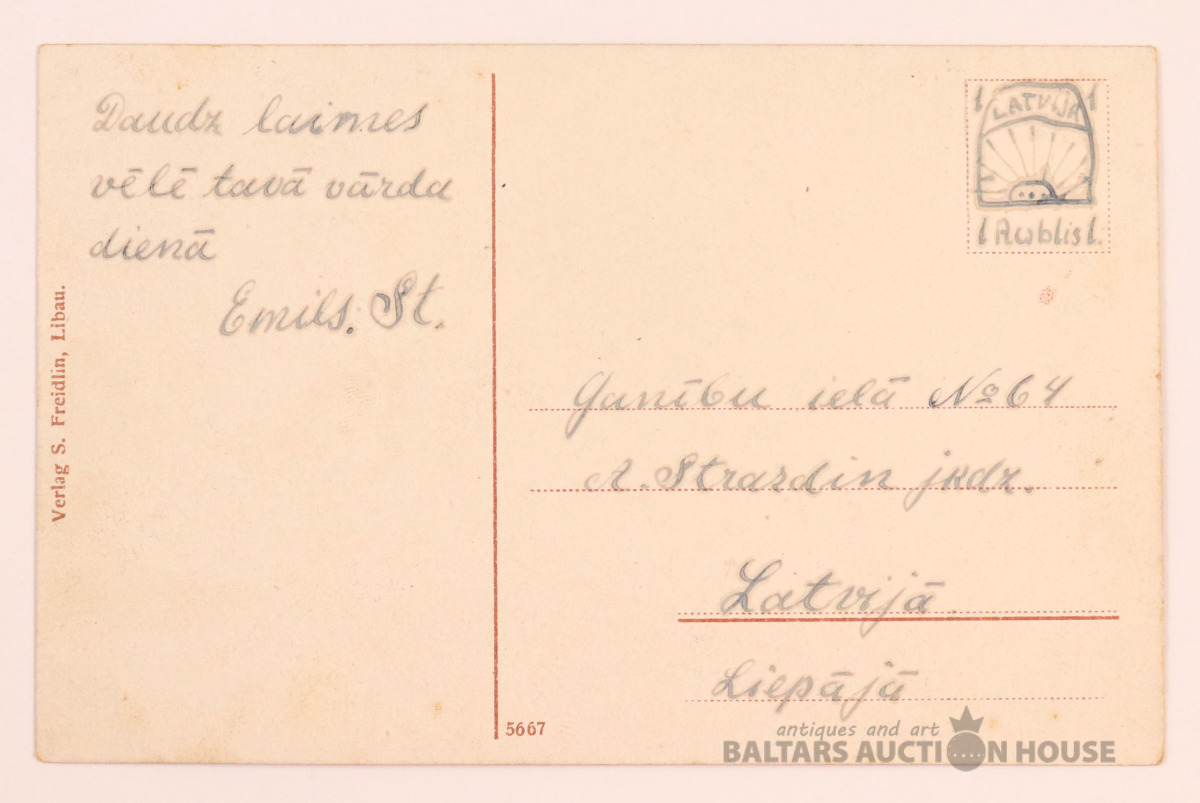 Daudz laimes
vēlē tavā vārda
dienā
Emils. St.
Verlag S. Freidlin, Libau.
1 LATVIJA 1
1 Rublis 1.
Ganību ielā № 64
A. Strazdin jkdz.
Latvijā.
Liepājā
5667
antiques and art
BALTARS AUCTION HOUSE